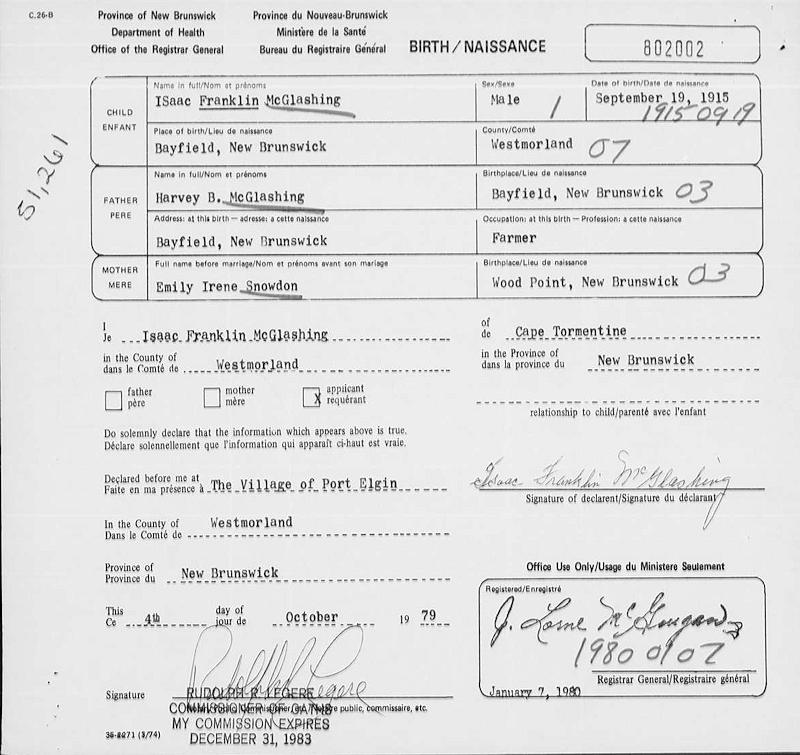 C.26-B
Province of New Brunswick
Department of Health
Office of the Registrar General
Province du Nouveau-Brunswick
Ministère de la Santé
Bureau du Registraire Général
BIRTH/NAISSANCE
802002
51,261
CHILD
ENFANT
Name in full/Nom et prénoms
ISaac Franklin McGlashing
Sex/Sexe
Male 1
Date of birth/Date de naissance
September 19, 1915
1915 09 19
Place of birth/Lieu de naissance
Bayfield, New Brunswick
County/Comté
Westmorland 07
FATHER
PERE
Name in full/Nom et prénoms
Harvey B. McGlashing
Birthplace/Lieu de naissance
Bayfield, New Brunswick 03
Address: at this birth — adresse: a cette naissance
Bayfield, New Brunswick
Occupation: at this birth — Profession: a cette naissance
Farmer
MOTHER
MERE
Full name before marriage/Nom et prénoms avant son mariage
Emily Irene Snowdon
Birthplace/Lieu de naissance
Wood Point, New Brunswick 03
I
Je Isaac Franklin McGlashing
of
de Cape Tormentine
in the County of
dans le Comté de Westmorland
in the Province of
dans la province du New Brunswick
father
père
mother
mère
X applicant
requérant
relationship to child/parenté avec l'enfant
Do solemnly declare that the information which appears above is true.
Déclare solennellement que l'information qui apparaît ci-haut est vraie.
Declared before me at
Faite en ma présence à The Village of Port Elgin
Isaac Franklin McGlashing
Signature of declarent/Signature du déclarant
In the County of
Dans le Comté de Westmorland
Province of
Province du New Brunswick
This
Ce 4th
day of
jour de October 19 79
Office Use Only/Usage du Ministere Seulement
Registered/Enregistré
J. Lorne McGuigan
1980 01 07
Registrar General/Registraire général
January 7, 1980
Rudolph R Legere
Signature RUDOLPH R. LEGERE
COMMISSIONER OF OATHS
public, commissaire, etc.
MY COMMISSION EXPIRES
DECEMBER 31, 1983
35-2271 (3/74)